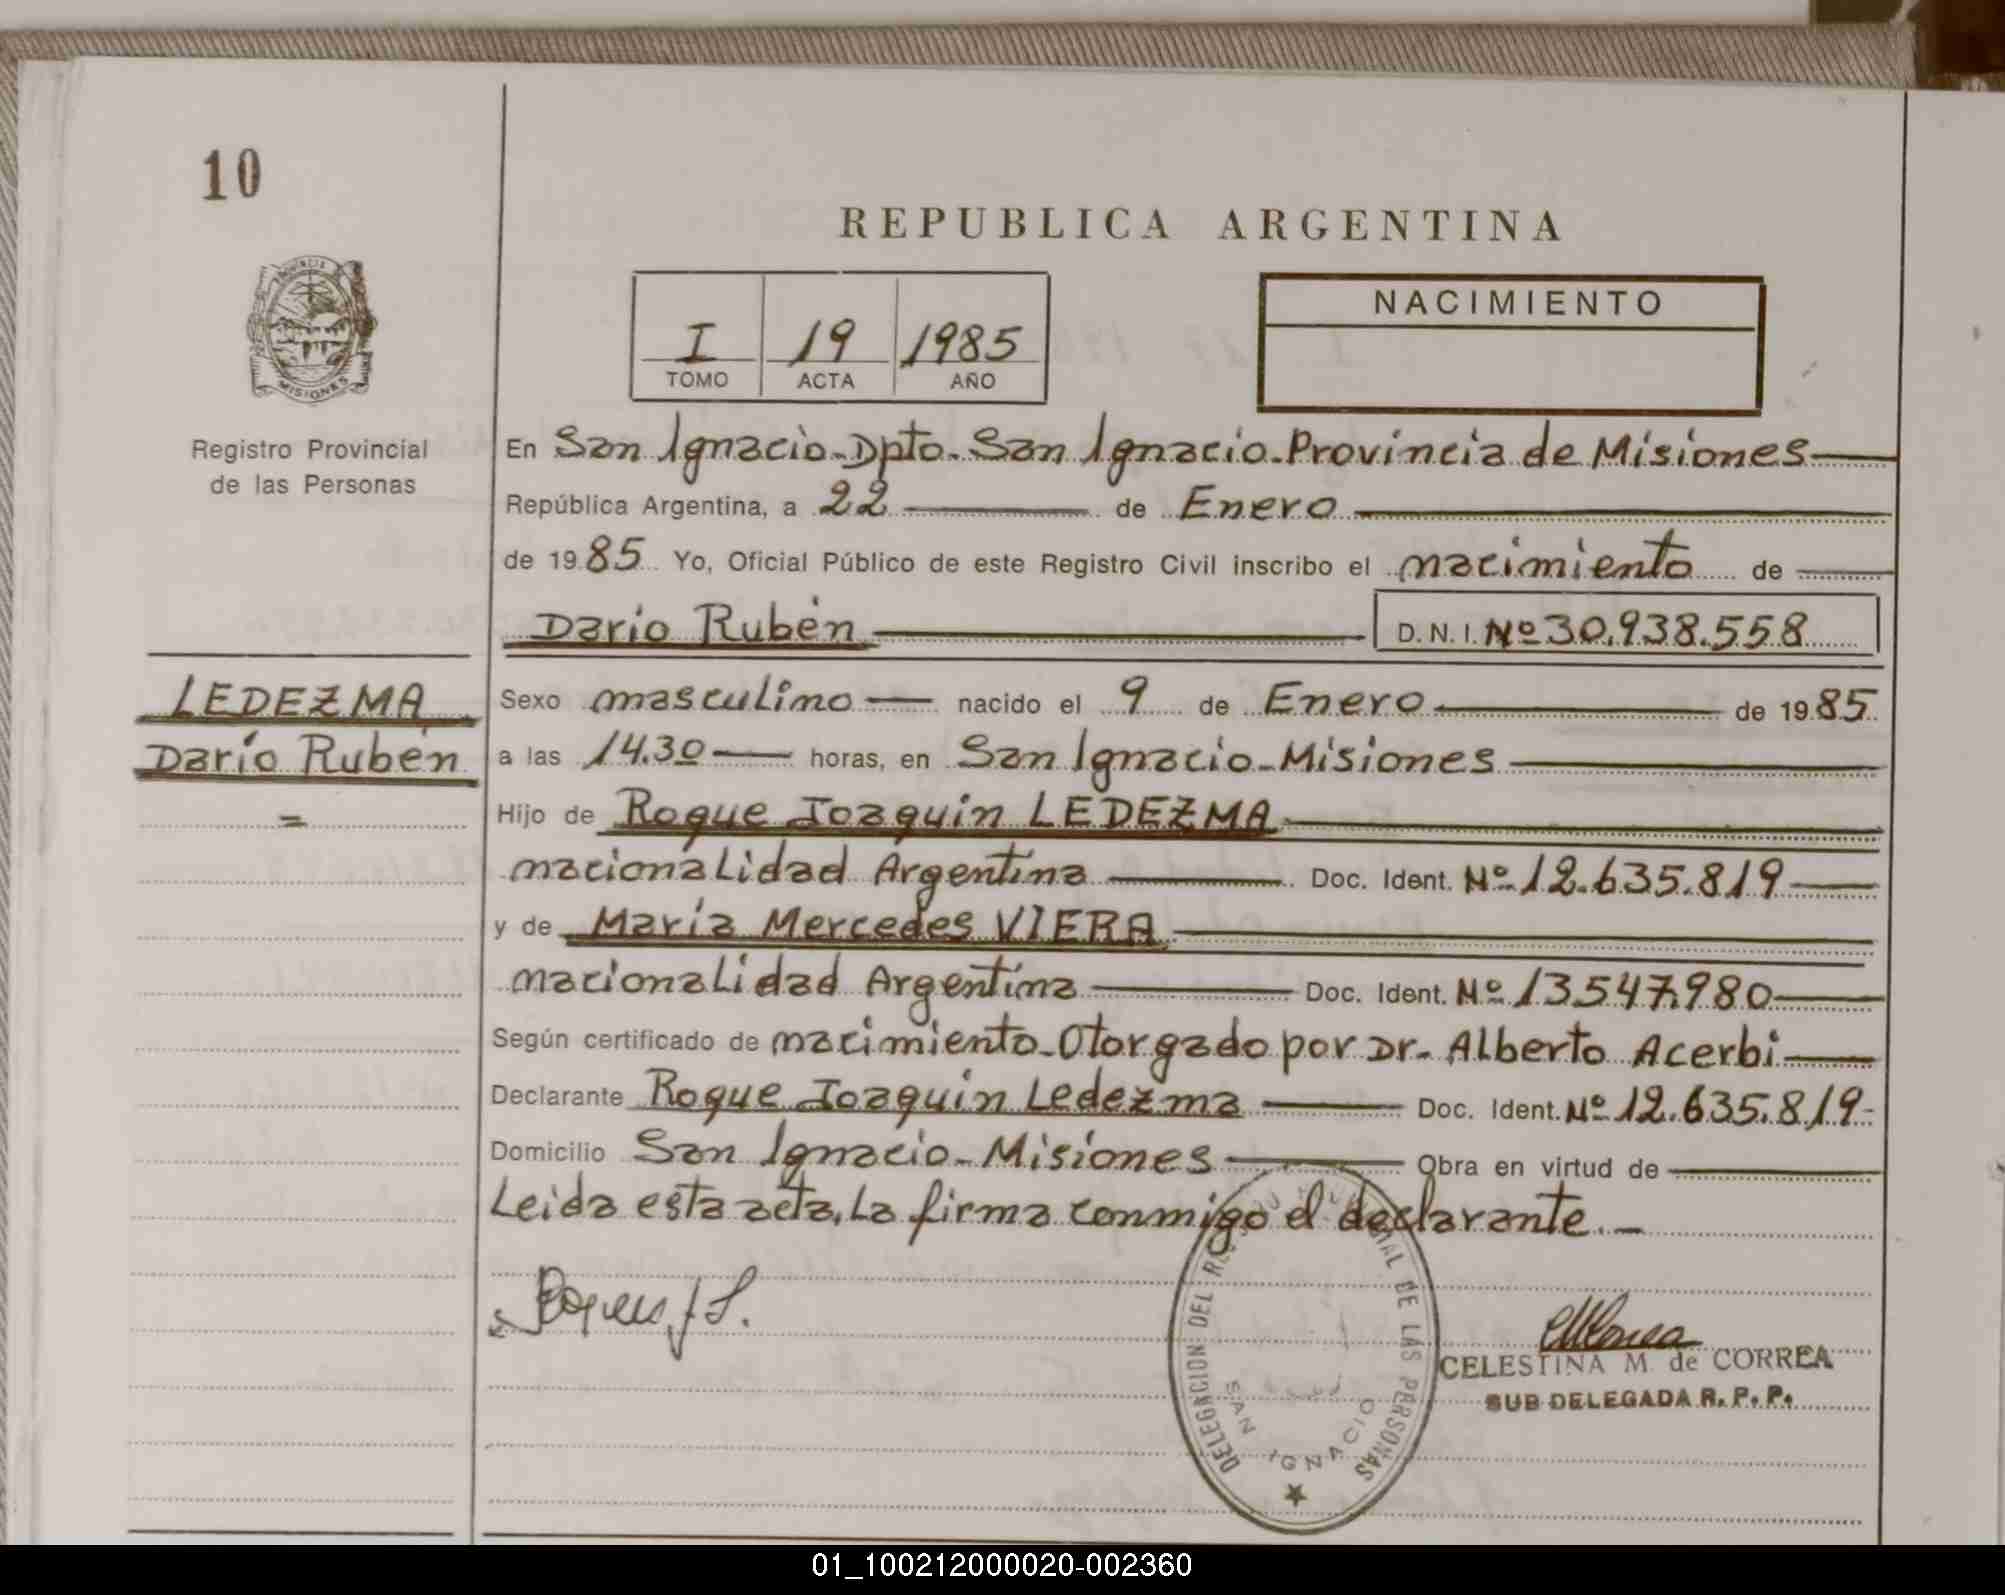 10
REPUBLICA ARGENTINA
PROVINCIA
MISIONES
Registro Provincial
de las Personas
I 19 1985
TOMO ACTA AÑO
NACIMIENTO
En San Ignacio-Dpto. San Ignacio-Provincia de Misiones
República Argentina, a 22 de Enero
de 1985 Yo, Oficial Público de este Registro Civil inscribo el nacimiento de
Darío Rubén D. N. I. Nº 30.938.558
LEDEZMA
Darío Rubén
=
Sexo masculino nacido el 9 de Enero de 1985
a las 14.30 horas, en San Ignacio-Misiones
Hijo de Roque Joaquín LEDEZMA
nacionalidad Argentina Doc. Ident. Nº 12.635.819
y de María Mercedes VIERA
nacionalidad Argentina Doc. Ident. Nº 13.547.980
Según certificado de nacimiento-Otorgado por Dr. Alberto Acerbi
Declarante Roque Joaquín Ledezma Doc. Ident. Nº 12.635.819-
Domicilio San Ignacio-Misiones Obra en virtud de
Leída esta acta, la firma conmigo el declarante.-
DELEGACION DEL DE LAS PERSONAS
SAN IGNACIO
CELESTINA M. de CORREA
SUB DELEGADA R. P. P.
01_100212000020-002360